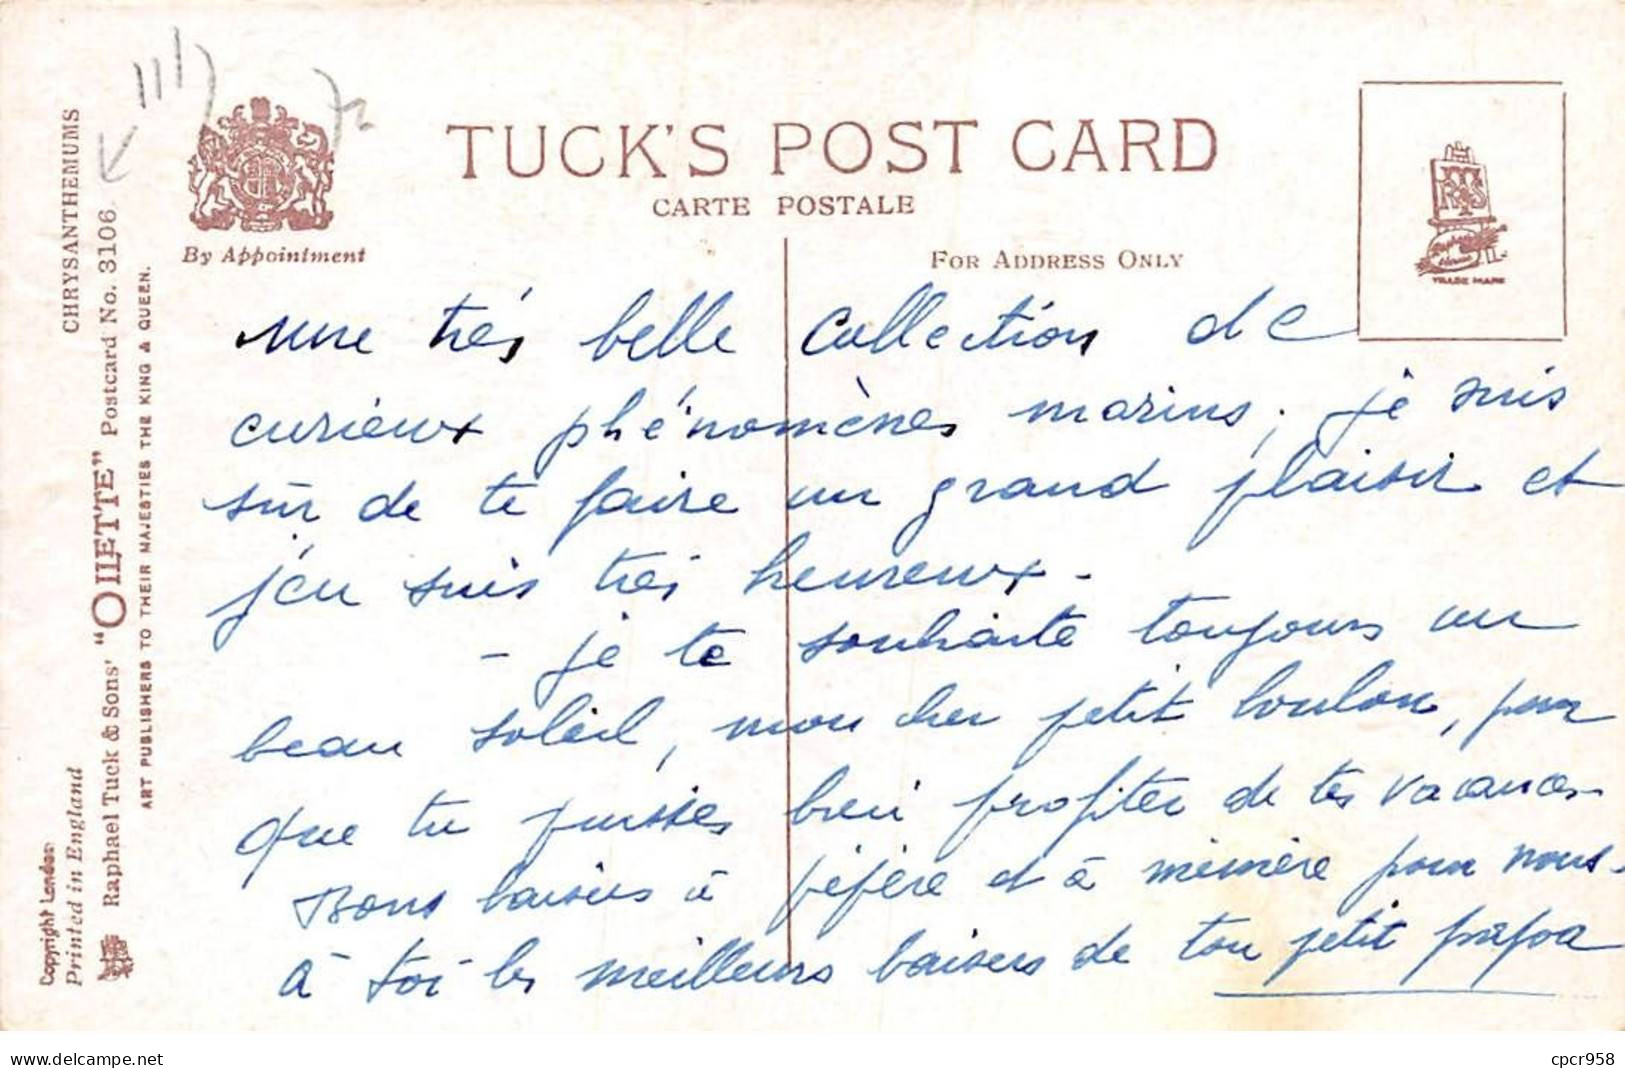 TUCK'S POST CARD
CARTE POSTALE
By Appointment
FOR ADDRESS ONLY
TRADE MARK
CHRYSANTHEMUMS
Raphael Tuck & Sons' "OILETTE" Postcard No. 3106
ART PUBLISHERS TO THEIR MAJESTIES THE KING & QUEEN.
Copyright London
Printed in England
une très belle collection de
curieux phénomènes marins, je suis
sûr de te faire un grand plaisir et
j'en suis très heureux -
- je te souhaite toujours un
beau soleil, mon cher petit loulou, pour
que tu puisses bien profiter de tes vacances -
Bons baisers à pépère et à mémère pour nous.
à toi les meilleurs baisers de ton petit papa
delcampe.net
cpcr958